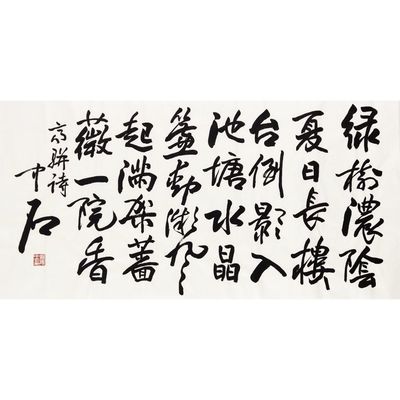 綠樹濃陰
夏日長樓
台倒影入
池塘水晶
簾動微風
起滿架薔
薇一院香
高駢詩
中石